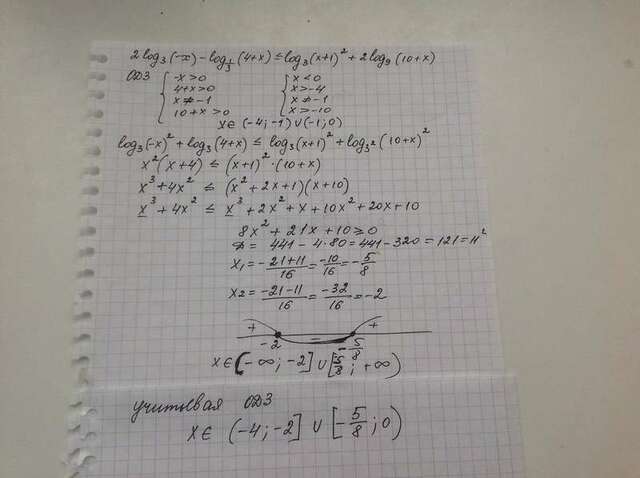 2log₃(-x) - log_{1/3}(4+x) ≤ log₃(x+1)² + 2log₉(10+x)
ОДЗ { -x>0 { x<0
4+x>0 x>-4
x≠-1 x≠-1
10+x>0 x>-10
x∈(-4;-1)∪(-1;0)
log₃(-x)² + log₃(4+x) ≤ log₃(x+1)² + log_{3²}(10+x)²
x²(x+4) ≤ (x+1)²·(10+x)
x³+4x² ≤ (x²+2x+1)(x+10)
x³+4x² ≤ x³+2x²+x+10x²+20x+10
8x²+21x+10≥0
D= 441-4·80=441-320=121=11²
x₁= (-21+11)/16 = -10/16 = -5/8
x₂= (-21-11)/16 = -32/16 = -2
+ - +
-2 -5/8
x∈(-∞;-2]∪[-5/8;+∞)
учитывая ОДЗ
x∈ (-4;-2] ∪ [-5/8;0)